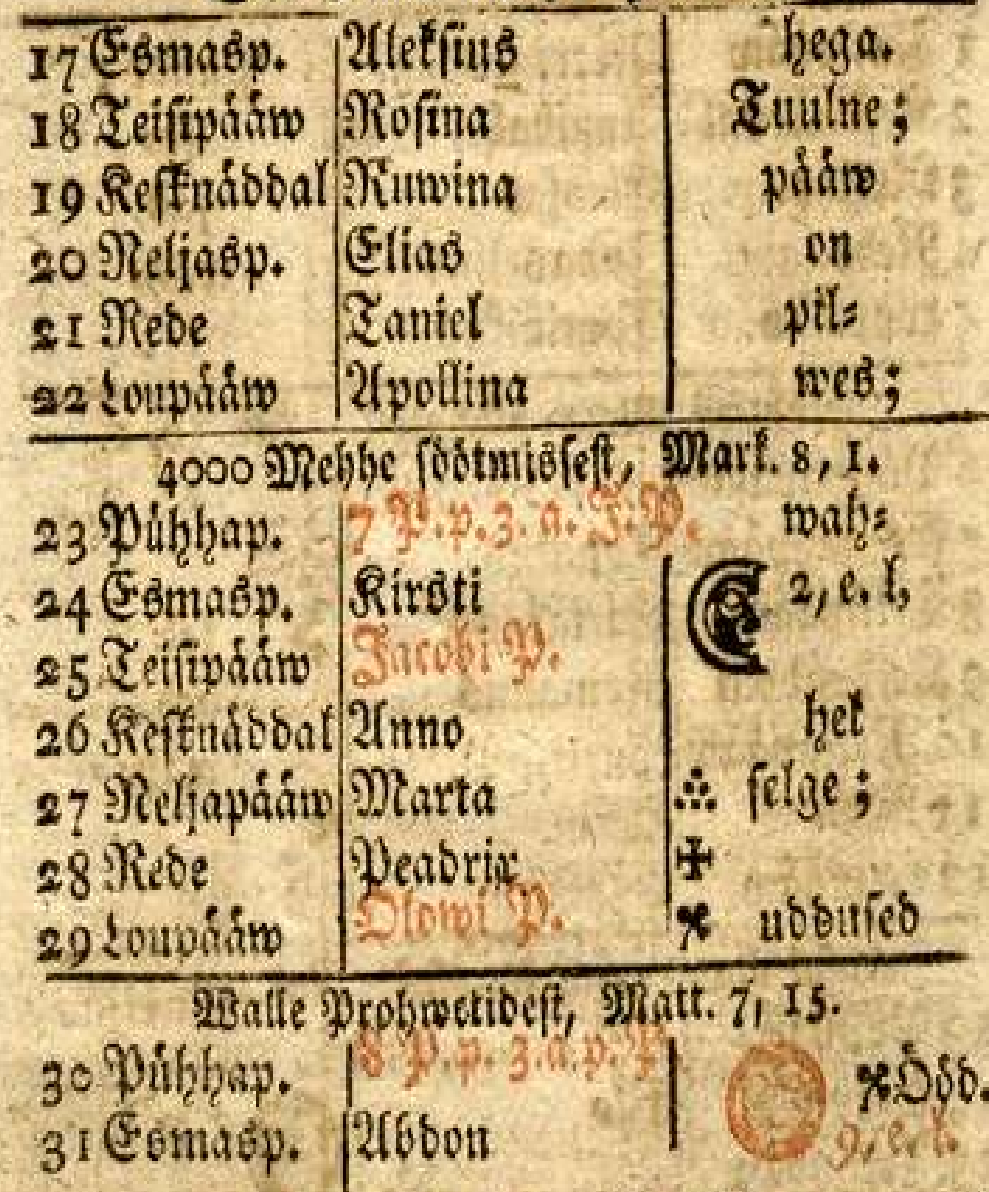 17 Esmasp. Aleksius hega.
18 Teisipääw Rosina Tuulne;
19 Kesknäddal Ruwina pääw
20 Neljasp. Elias on
21 Rede Taniel pil⸗
22 Loupääw Apollina wes;
4000 Mehhe söötmissest, Mark. 8, 1.
23 Pühhap. 7 P. p. 3. a. J. P. wah⸗
24 Esmasp. Kirsti 2, e. l,
25 Teisipääw Jacobi P.
26 Kesknäddal Anno hel
27 Neljapääw Marta selge;
28 Rede Peadrix
29 Loupääw Olowi P. uddused
Walle Prohwetidest, Matt. 7, 15.
30 Pühhap. 8 P. p. 3. a. p. P. Ööd.
31 Esmasp. Abdon 9, e. l.